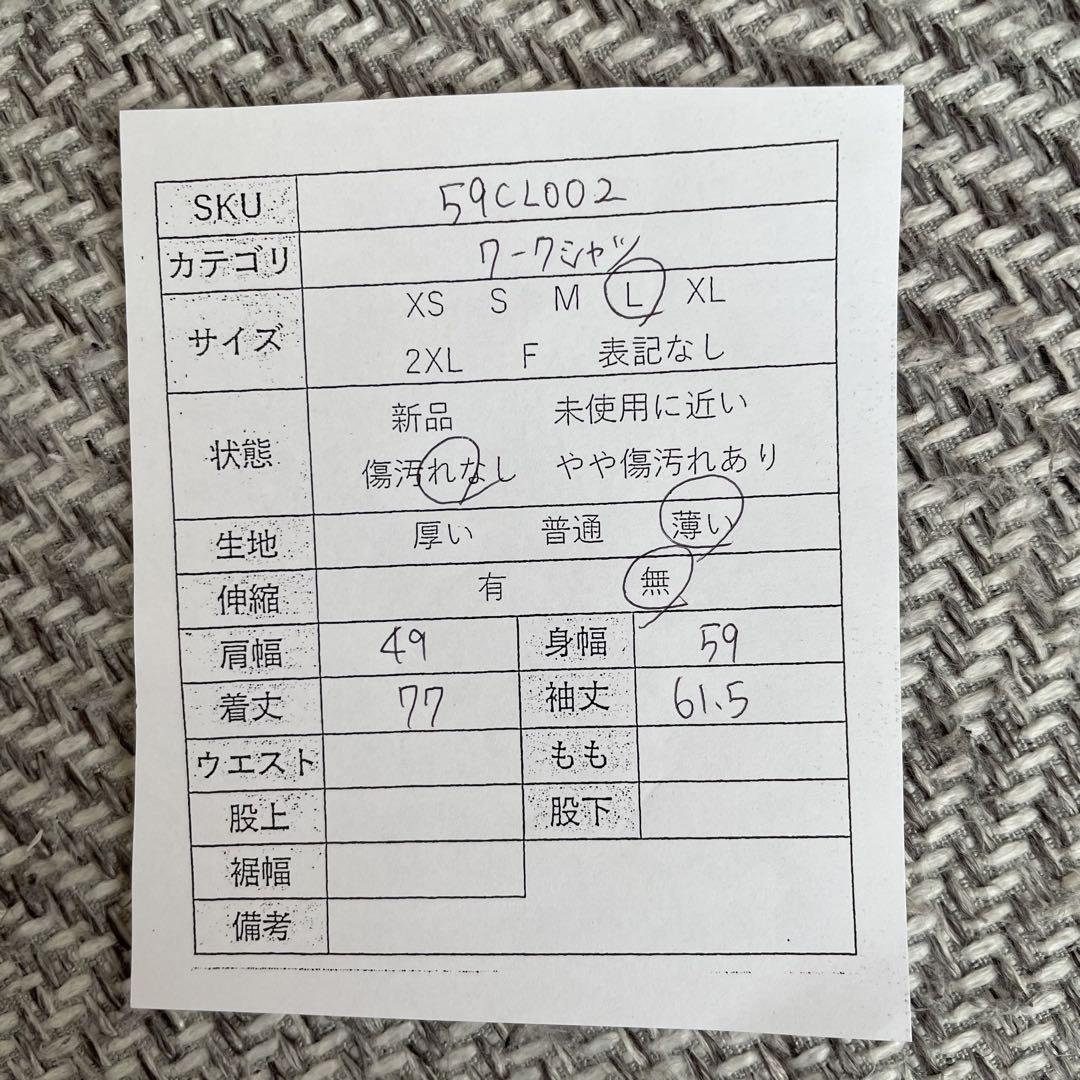 SKU 59CL002
カテゴリ ワークシャツ
サイズ XS S M L XL
2XL F 表記なし
状態 新品 未使用に近い
傷汚れなし やや傷汚れあり
生地 厚い 普通 薄い
伸縮 有 無
肩幅 49 身幅 59
着丈 77 袖丈 61.5
ウエスト もも
股上 股下
裾幅
備考